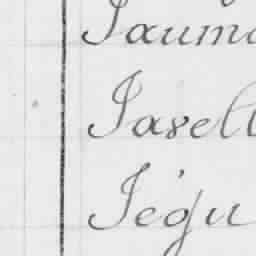 Jauma
Javell
Jégu